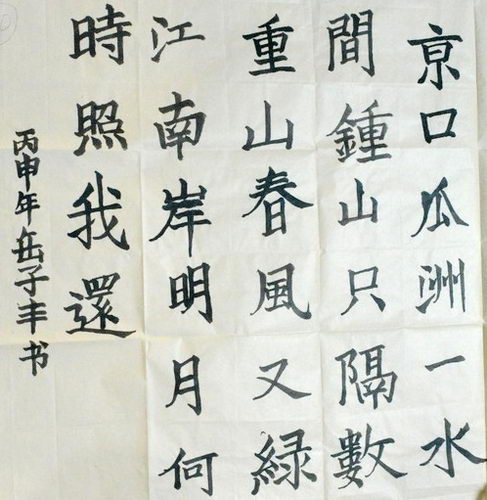 京口瓜洲一水
間鍾山只隔數
重山春風又緑
江南岸明月何
時照我還
丙申年岳子丰书